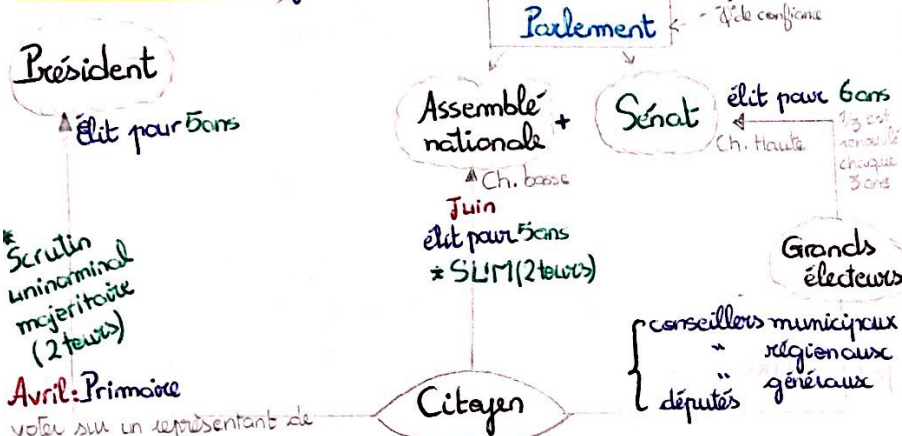 Parlement
de confiance
Président
élit pour 5ans
Assemblé
nationale
+
Sénat
élit pour 6ans
1/3 est
renouvelé
chaque
3 ans
Ch. Haute
Ch. basse
Juin
élit pour 5ans
* SUM (2 tours)
* Scrutin
uninominal
majoritaire
(2 tours)
Grands
électeurs
conseillers municipaux
" régionaux
" généraux
députés
Avril: Primaire
voter sur un représentant de
Citoyen